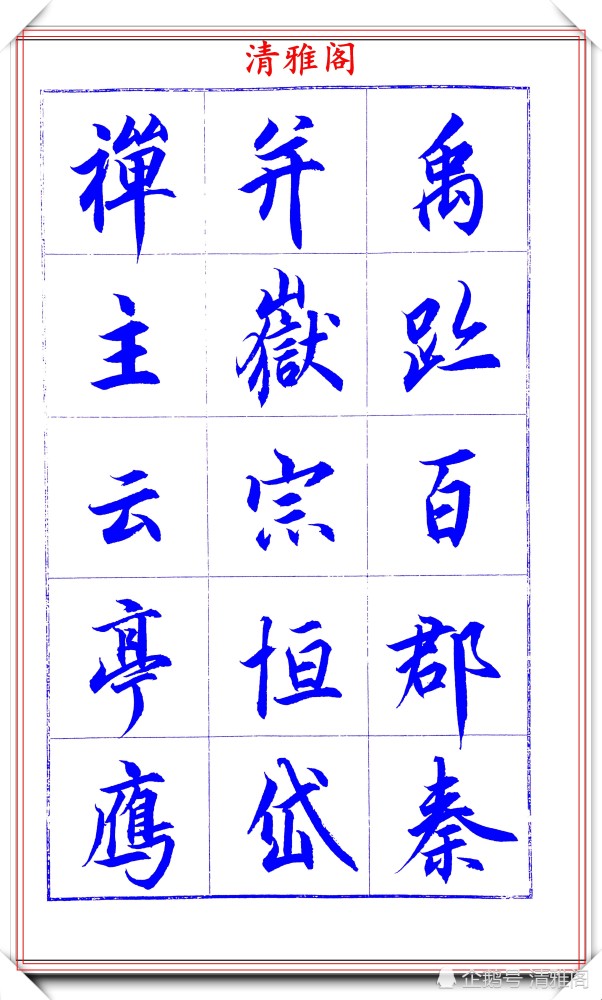 清雅阁
禹跡百郡秦
并嶽宗恒岱
禪主云亭鴈
企鹅号 清雅阁